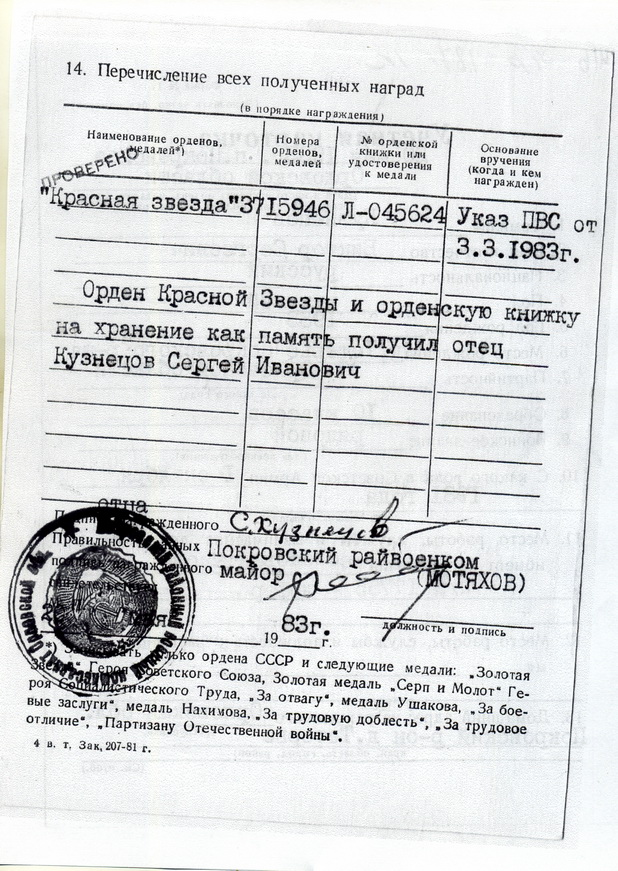 14. Перечисление всех полученных наград
(в порядке награждения)
Наименование орденов, медалей*)
Номера орденов, медалей
№ орденской книжки или удостоверения к медали
Основание вручения (когда и кем награжден)
ПРОВЕРЕНО
"Красная звезда" 3715946 Л-045624 Указ ПВС от
3.3.1983г.
Орден Красной Звезды и орденскую книжку
на хранение как память получил отец
Кузнецов Сергей Иванович
отца
награжденного С.Кузнецов
Правильность данных Покровский райвоенком
подпись награжденного майор (МОТЯХОВ)
19 83г. г.
должность и подпись
только ордена СССР и следующие медали: „Золотая
Звезда" Героя Советского Союза, Золотая медаль „Серп и Молот" Ге-
роя Социалистического Труда, „За отвагу", медаль Ушакова, „За бое-
вые заслуги", медаль Нахимова, „За трудовую доблесть", „За трудовое
отличие", „Партизану Отечественной войны".
4 в. т. Зак, 207-81 г.